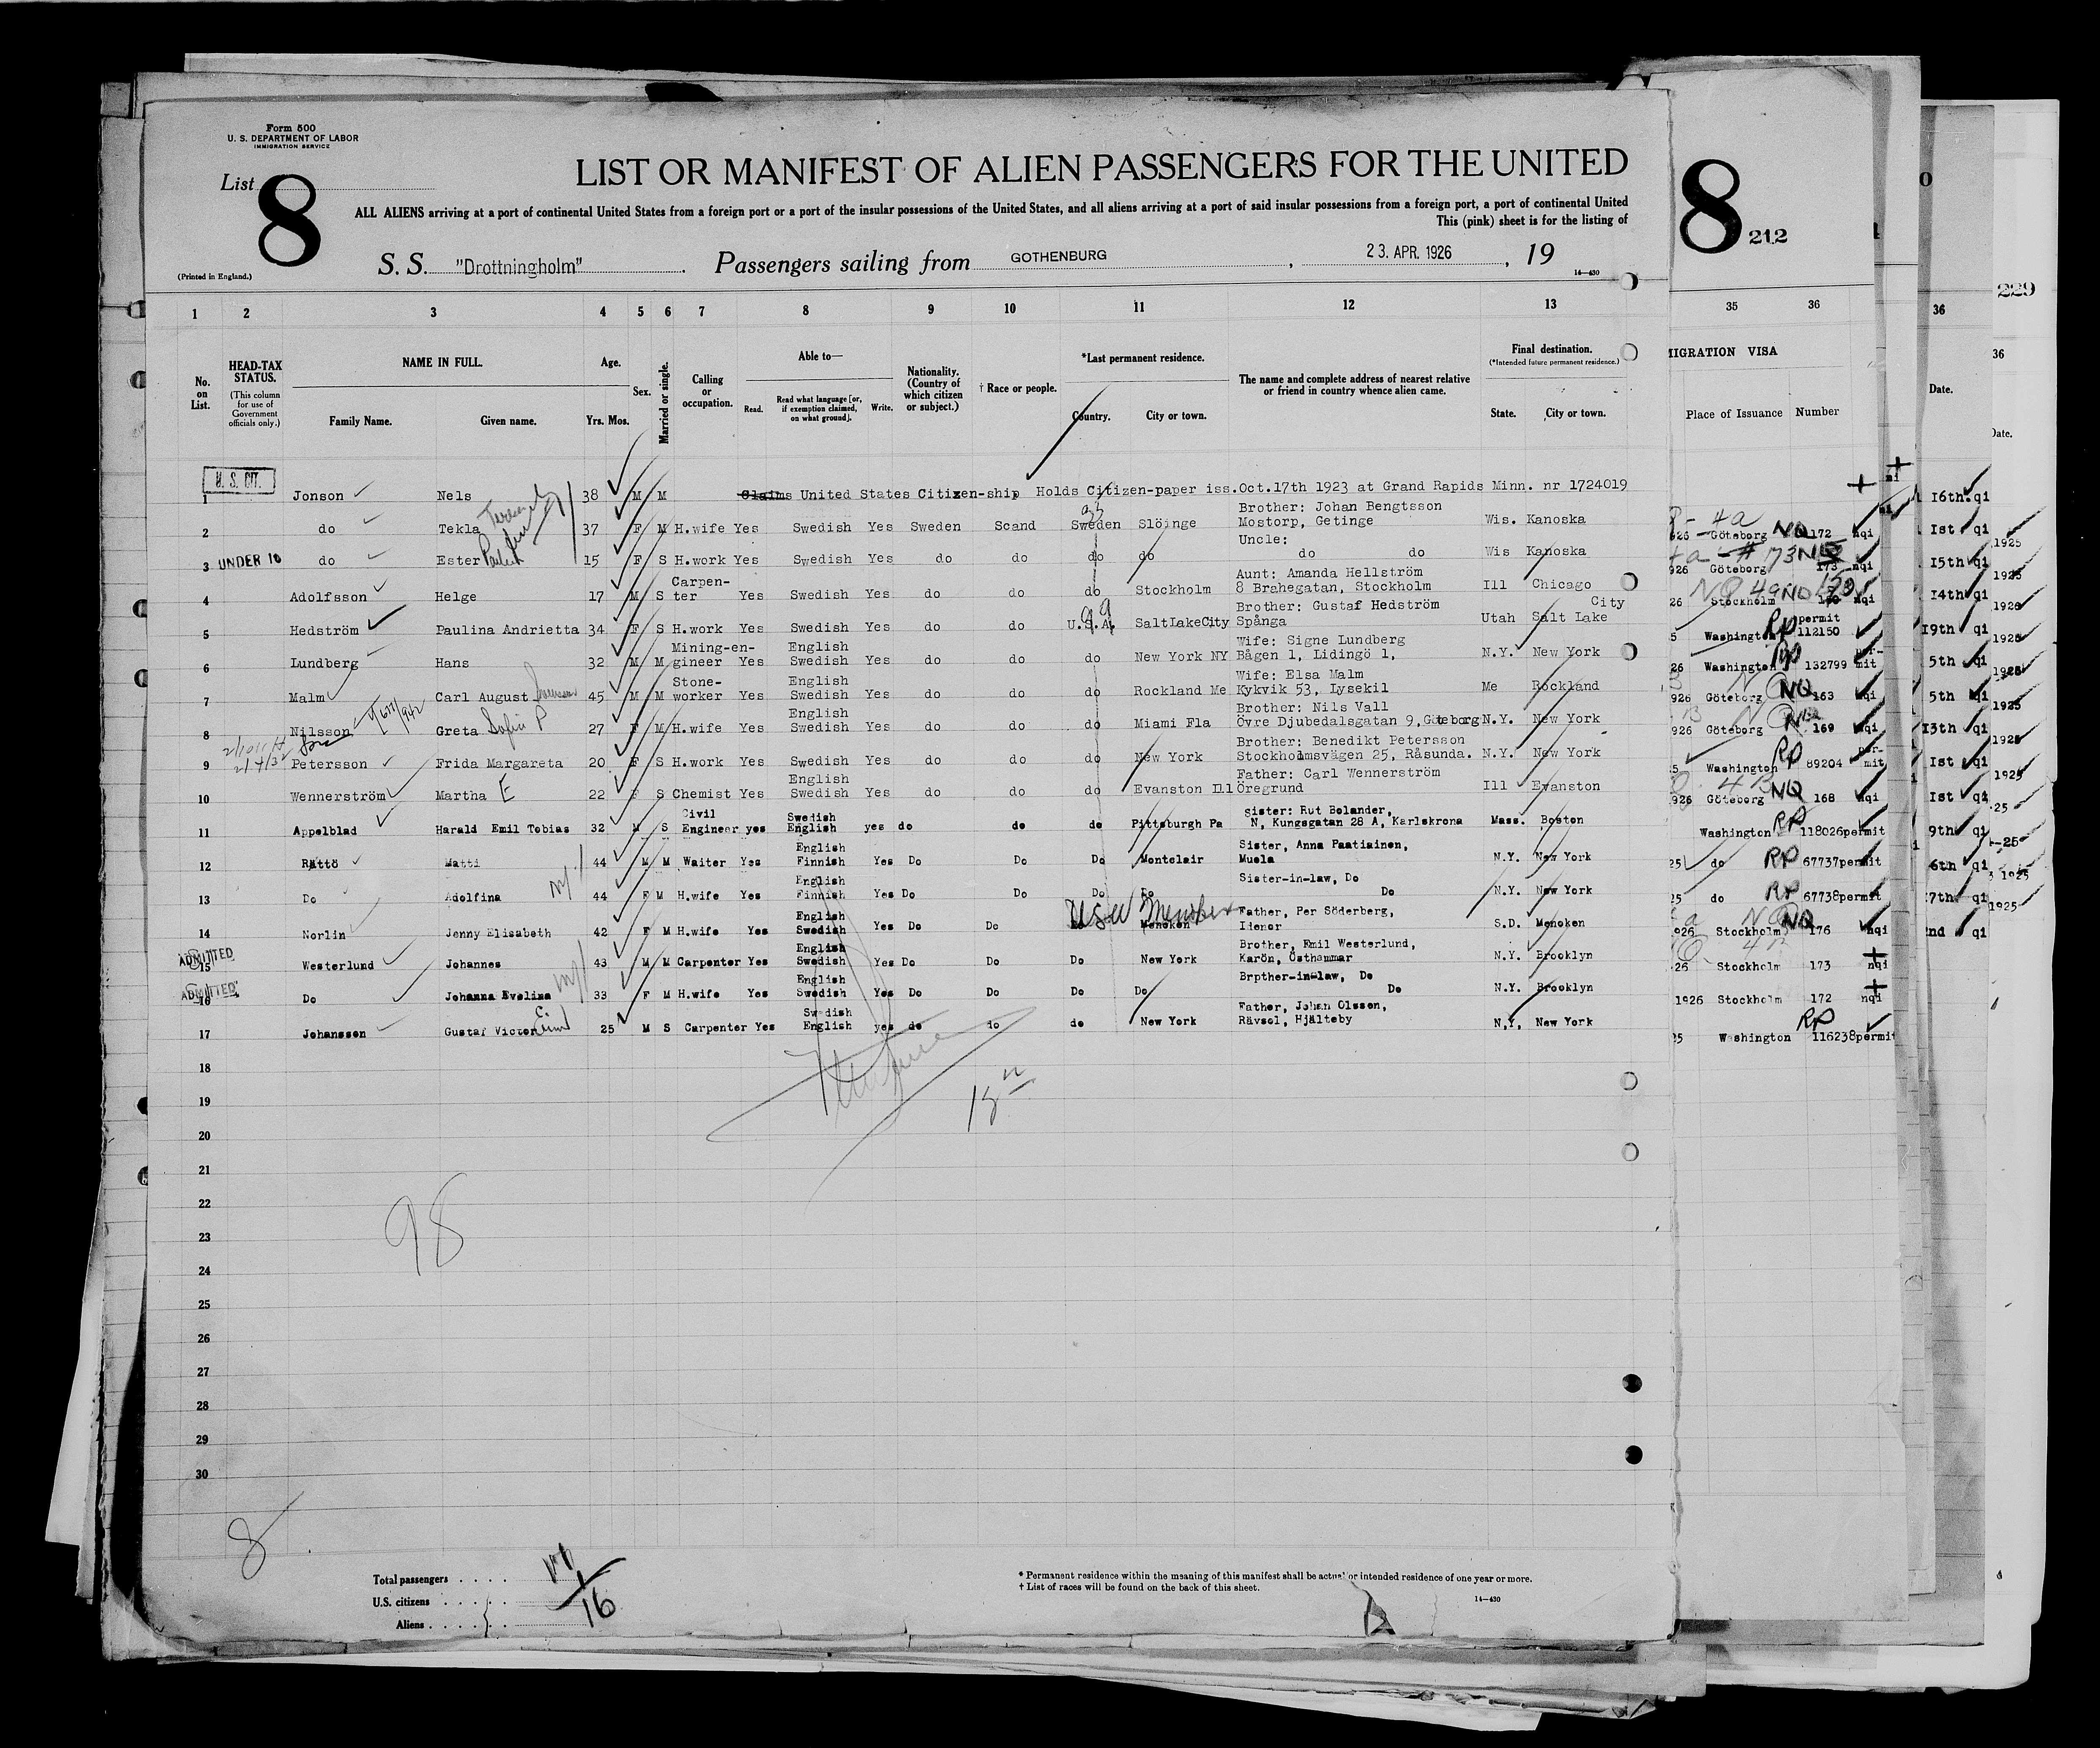 Form 500
U. S. DEPARTMENT OF LABOR
IMMIGRATION SERVICE
List 8
LIST OR MANIFEST OF ALIEN PASSENGERS FOR THE UNITED
ALL ALIENS arriving at a port of continental United States from a foreign port or a port of the insular possessions of the United States, and all aliens arriving at a port of said insular possessions from a foreign port, a port of continental United
This (pink) sheet is for the listing of
(Printed in England.)
S. S. "Drottningholm" Passengers sailing from GOTHENBURG, 23. APR. 1926, 19
14—430
8 212
229
1 2 3 4 5 6 7 8 9 10 11 12 13 35 36 36
No. on List.
HEAD-TAX STATUS.
(This column for use of Government officials only.)
NAME IN FULL.
Family Name. Given name.
Age.
Yrs. Mos.
Sex.
Married or single.
Calling or occupation.
Able to—
Read. Read what language [or, if exemption claimed, on what ground]. Write.
Nationality. (Country of which citizen or subject.)
† Race or people.
*Last permanent residence.
Country. City or town.
The name and complete address of nearest relative or friend in country whence alien came.
Final destination.
(*Intended future permanent residence.)
State. City or town.
MIGRATION VISA
Place of Issuance Number
Date.
U. S. CIT.
1 Jonson Nels 38 M M Claims United States Citizen-ship Holds Citizen-paper iss.Oct.17th 1923 at Grand Rapids Minn. nr 1724019
Brother: Johan Bengtsson
2 do Tekla 37 F M H.wife Yes Swedish Yes Sweden Scand Sweden Slöinge Mostorp, Getinge Wis. Kanoska Göteborg NQ 172 nqi
Uncle:
3 UNDER 16 do Ester 15 F S H.work Yes Swedish Yes do do do do do do Wis Kanoska 926 Göteborg 173 nqi
Carpen- Aunt: Amanda Hellström
4 Adolfsson Helge 17 M S ter Yes Swedish Yes do do do Stockholm 8 Brahegatan, Stockholm Ill Chicago 26 Stockholm nqi
Brother: Gustaf Hedström City permit
5 Hedström Paulina Andrietta 34 F S H.work Yes Swedish Yes do do U.S.A. SaltLakeCity Spånga Utah Salt Lake 5 Washington RP 112150
Mining-en- English Wife: Signe Lundberg
6 Lundberg Hans 32 M M gineer Yes Swedish Yes do do do New York NY Bågen 1, Lidingö 1, N.Y. New York 26 Washington RP 132799 per-mit
Stone- English Wife: Elsa Malm
7 Malm Carl August 45 M M worker Yes Swedish Yes do do do Rockland Me Kykvik 53, Lysekil Me Rockland 926 Göteborg NQ 163 nqi
English Brother: Nils Vall
8 Nilsson Greta Sofia P 27 F M H.wife Yes Swedish Yes do do do Miami Fla Övre Djubedalsgatan 9,Göteborg N.Y. New York 926 Göteborg NQ 169 nqi
Brother: Benedikt Petersson
9 Petersson Frida Margareta 20 F S H.work Yes Swedish Yes do do do New York Stockholmsvägen 25, Råsunda. N.Y. New York 5 Washington RP 89204 per-mit
English Father: Carl Wennerström
10 Wennerström Martha E 22 F S Chemist Yes Swedish Yes do do do Evanston Ill Öregrund Ill Evanston 926 Göteborg NQ 168 nqi
Civil Swedish Sister: Rut Bolander,
11 Appelblad Harald Emil Tobias 32 M S Engineer yes English yes do do do Pittsburgh Pa N, Kungsgatan 28 A, Karlskrona Mass. Boston Washington RP 118026permit
English Sister, Anna Paatiainen,
12 Rättö Matti 44 M M Waiter Yes Finnish Yes Do Do Do Montclair Muola N.Y. New York 25 do RP 67737permit
English Sister-in-law, Do
13 Do Adolfina 44 F M H.wife Yes Finnish Yes Do Do Do Do Do N.Y. New York 25 do RP 67738permit
English Father, Per Söderberg,
14 Norlin Jenny Elisabeth 42 F M H.wife Yes Swedish Yes Do Do Menoken Lidenor S.D. Menoken 926 Stockholm NQ 176 nqi
English Brother, Emil Westerlund,
ADMITTED
15 Westerlund Johannes 43 M M Carpenter Yes Swedish Yes Do Do Do New York Karön, Östhammar N.Y. Brooklyn 26 Stockholm 173 nqi
English Brpther-in-law, Do
ADMITTED
16 Do Johanna Evelina 33 F M H.wife Yes Swedish Yes Do Do Do Do Do N.Y. Brooklyn 1926 Stockholm 172 nqi
Swedish Father, Johan Olssen,
17 Johansson Gustaf Victor 25 M S Carpenter Yes English yes do do do New York Rävsol, Hjälteby N.Y. New York 25 Washington RP 116238permit
18
19
20
21
22
23
24
25
26
27
28
29
30
98
8
Total passengers
U.S. citizens
Aliens
16
* Permanent residence within the meaning of this manifest shall be actual or intended residence of one year or more.
† List of races will be found on the back of this sheet.
14—430